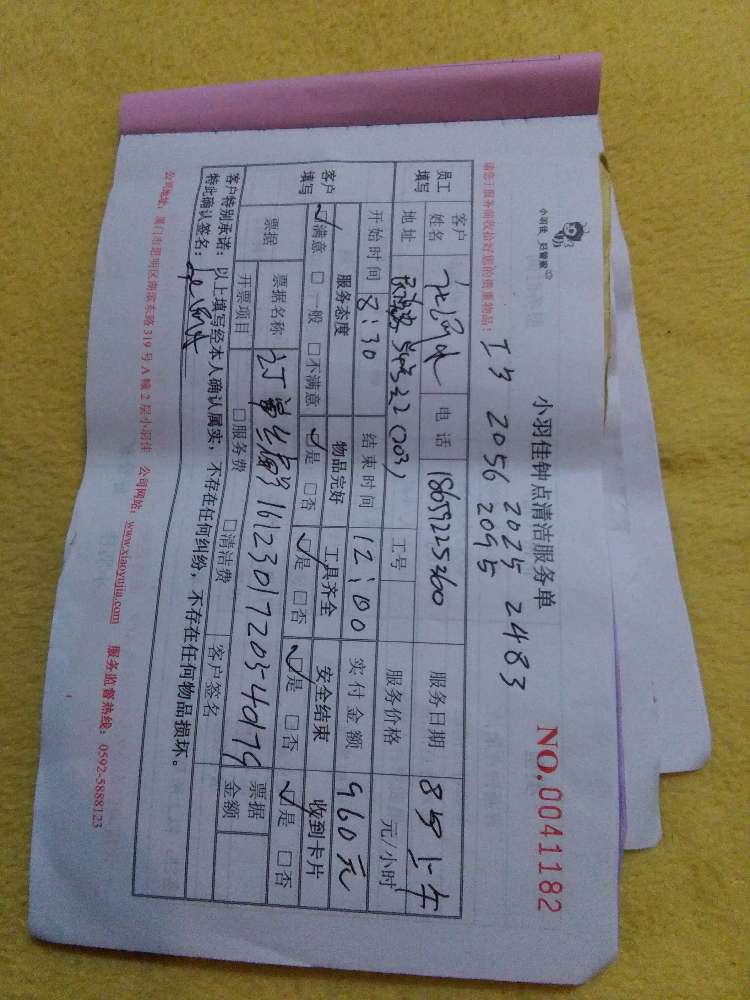 小羽佳 好管家
小羽佳钟点清洁服务单
NO.0041182
请您于服务前收拾好您的贵重物品:
工号 2056 2025 2483
2095
员工填写 客户姓名 电话 18659225260 服务日期 8号上午
地址 工号 服务价格 元/小时
开始时间 8:30 结束时间 12:00 实付金额 960元
客户填写 服务态度 物品完好 工具齐全 安全结束 收到卡片
☑满意 □一般 □不满意 ☑是 □否 ☑是 □否 ☑是 □否 ☑是 □否
票据 票据名称 订单编号 票据金额
开票项目 □服务费 □清洁费 客户签名
客户特别承诺:以上填写经本人确认属实,不存在任何纠纷,不存在任何物品损坏。
特此确认签名:
公司地址:厦门市思明区湖滨东路319号A幢2层小羽佳 公司网站:www.xiaoyujia.com 服务监督热线:0592-5888123